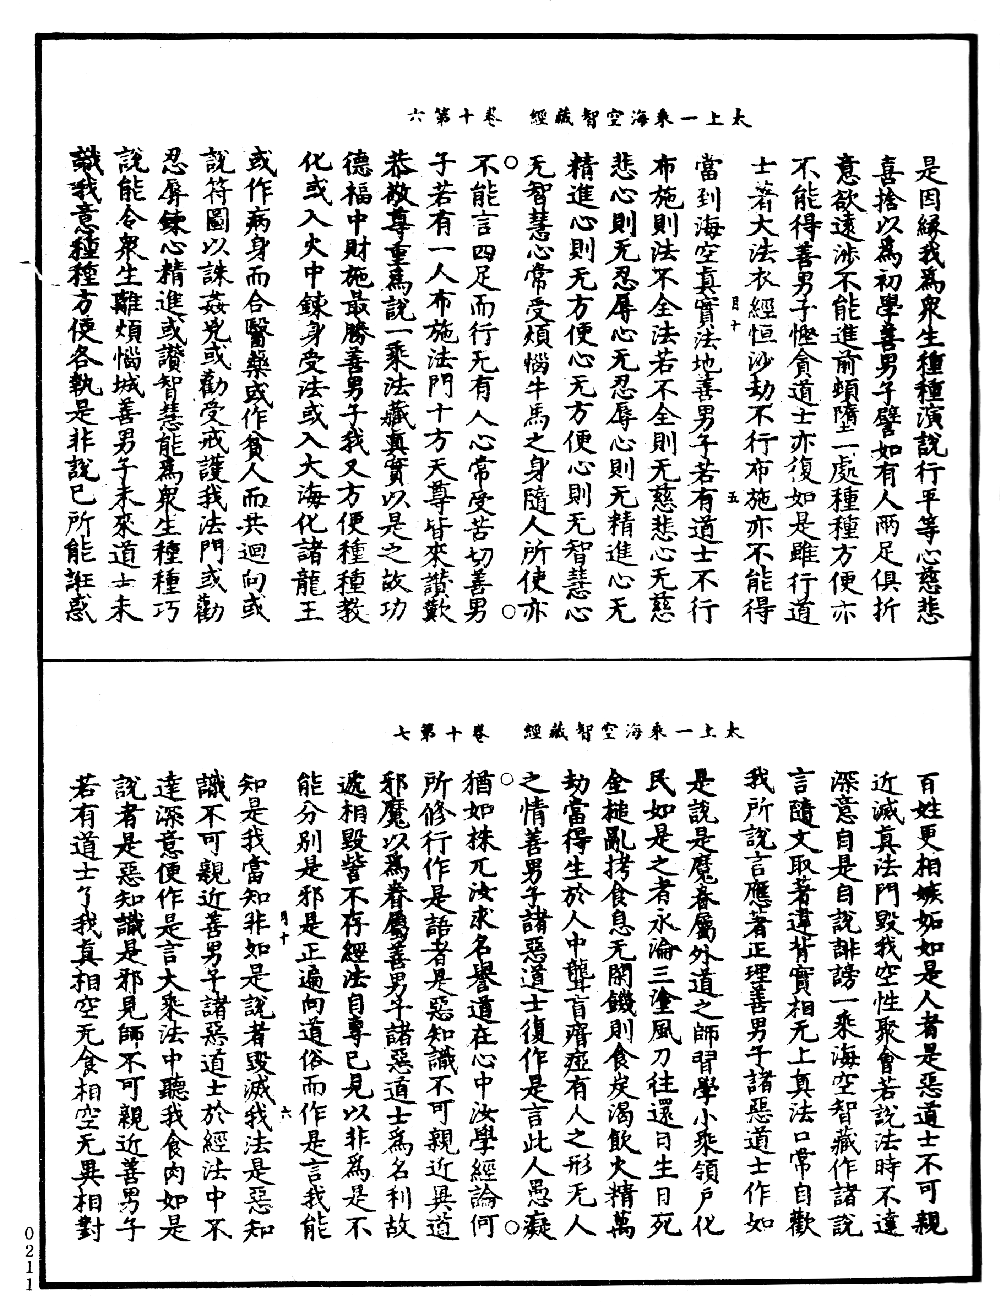 太上一乘海空智藏經　卷十第六
是因緣我為衆生種種演說行平等心慈悲
喜捨以為初學善男子譬如有人兩足俱折
意欲遠涉不能進前頓墮一處種種方便亦
不能得善男子慳貪道士亦復如是雖行道
士著大法衣經恒沙劫不行布施亦不能得
月十　五
當到海空真實法地善男子若有道士不行
布施則法不全法若不全則无慈悲心无慈
悲心則无忍辱心无忍辱心則无精進心无
精進心則无方便心无方便心則无智慧心
无智慧心常受煩惱牛馬之身隨人所使亦
不能言四足而行无有人心常受苦切善男
子若有一人布施法門十方天尊皆來讚歎
恭敬尊重為說一乘法藏真實以是之故功
德福中財施最勝善男子我又方便種種教
化或入火中鍊身受法或入大海化諸龍王
或作病身而合醫藥或作貧人而共迴向或
說符圖以誅姦兇或勸受戒護我法門或勸
忍辱鍊心精進或讚智慧能為衆生種種巧
說能令衆生離煩惱城善男子未來道士未
識我意種種方便各執是非說已所能誑惑
太上一乘海空智藏經　卷十第七
百姓更相嫉妬如是人者是惡道士不可親
近滅真法門毀我空性聚會若說法時不達
深意自是自說誹謗一乘海空智藏作諸說
言隨文取著違背實相无上真法口常自歡
我所說言應著正理善男子諸惡道士作如
是說是魔眷屬外道之師習學小乘領戶化
民如是之者永淪三塗風刀往還日生日死
金槌亂拷食息无閑饑則食炭渴飲火精萬
劫當得生於人中聾盲瘖瘂有人之形无人
之情善男子諸惡道士復作是言此人愚癡
猶如株兀汝求名譽道在心中汝學經論何
所修行作是語者是惡知識不可親近與道
邪魔以為眷屬善男子諸惡道士為名利故
遞相毀訾不存經法自專已見以非為是不
能分別是邪是正遍向道俗而作是言我能
月十　六
知是我當知非如是說者毀滅我法是惡知
識不可親近善男子諸惡道士於經法中不
達深意便作是言大乘法中聽我食肉如是
說者是惡知識是邪見師不可親近善男子
若有道士了我真相空无食相空无異相對
0211